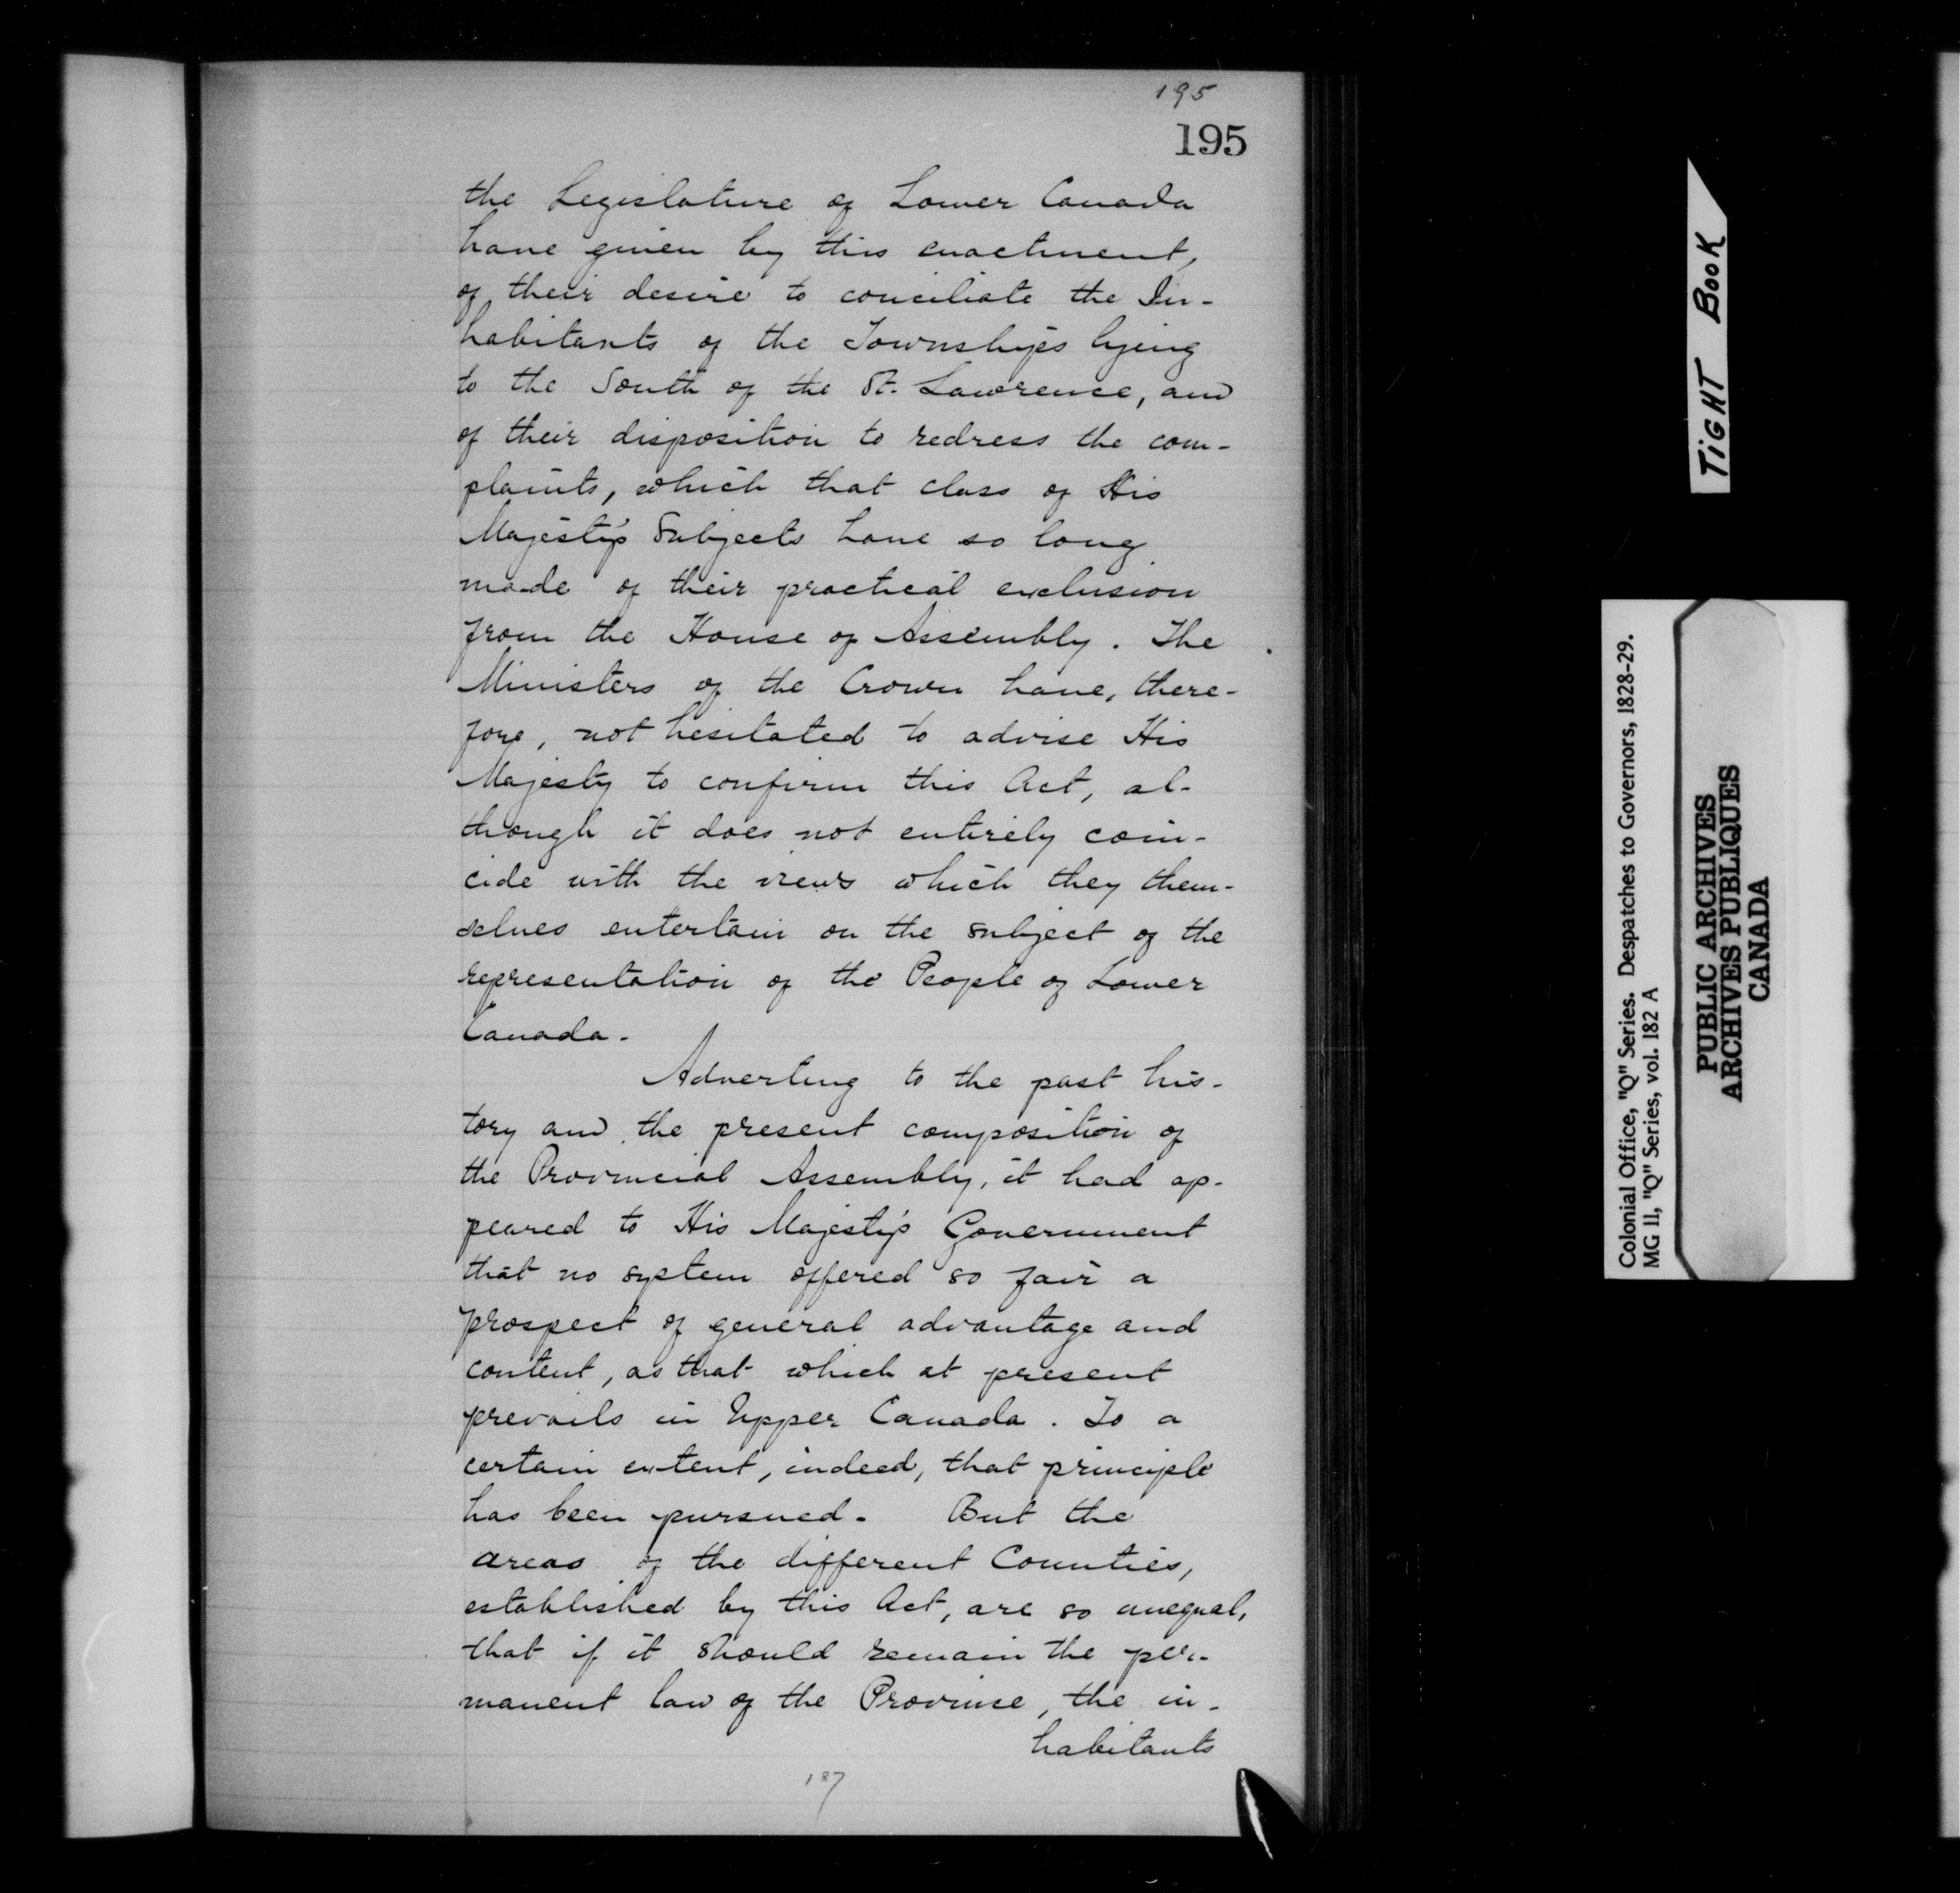 195
195
the Legislature of Lower Canada
have given by this enactment,
of their desire to conciliate the In-
habitants of the Townships lying
to the South of the St. Lawrence, and
of their disposition to redress the com-
plaints, which that class of His
Majesty's Subjects have so long
made of their practical exclusion
from the House of Assembly. The
Ministers of the Crown have, there-
fore, not hesitated to advise His
Majesty to confirm this Act, al-
though it does not entirely coin-
cide with the views which they them-
selves entertain on the subject of the
representation of the People of Lower
Canada.
Adverting to the past his-
tory and the present composition of
the Provincial Assembly, it had ap-
peared to His Majesty's Government
that no system offered so fair a
prospect of general advantage and
content, as that which at present
prevails in Upper Canada. To a
certain extent, indeed, that principle
has been pursued. But the
areas of the different Counties,
established by this Act, are so unequal,
that if it should remain the per-
manent law of the Province, the in-
habitants
187
TIGHT BOOK
Colonial Office, "Q" Series. Despatches to Governors, 1828-29.
MG 11, "Q" Series, vol. 182 A
PUBLIC ARCHIVES
ARCHIVES PUBLIQUES
CANADA